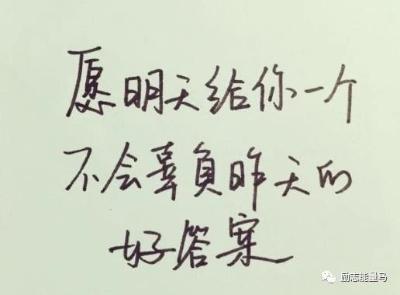 愿明天给你一个
不会辜负昨天的
好答案
励志能量马